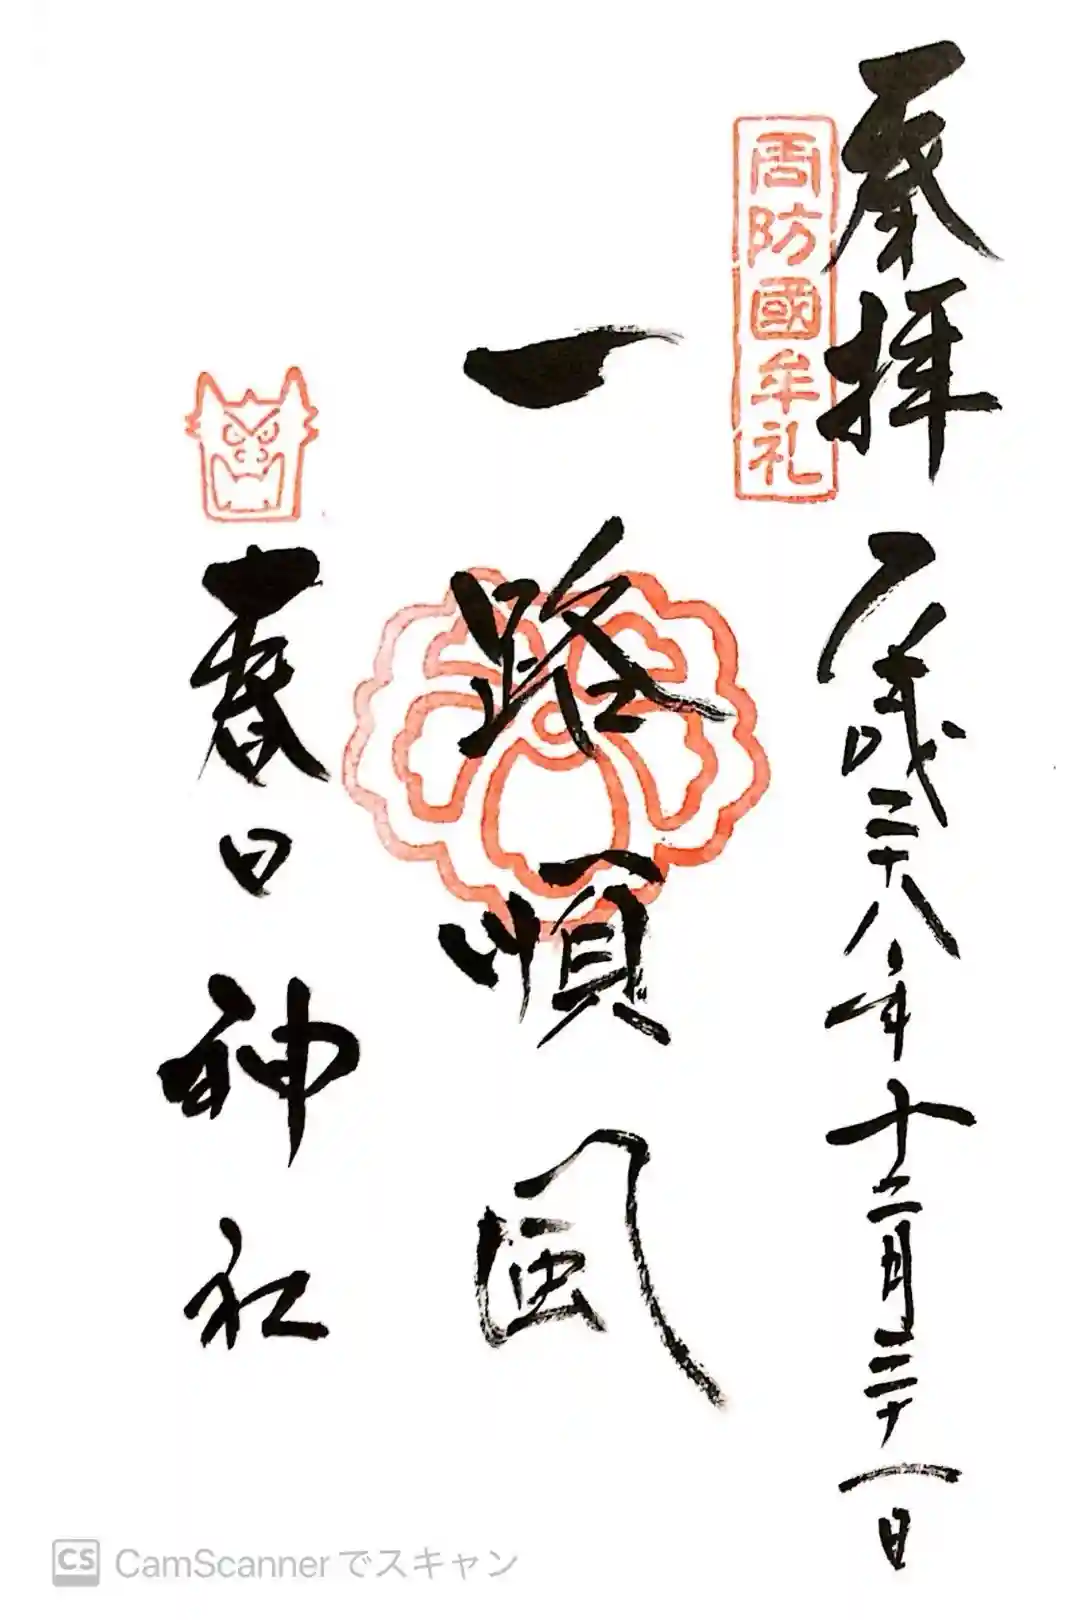 奉拝
周防國牟礼
二十八年十二月三十一日
一路順風
春日神社
CS CamScannerでスキャン